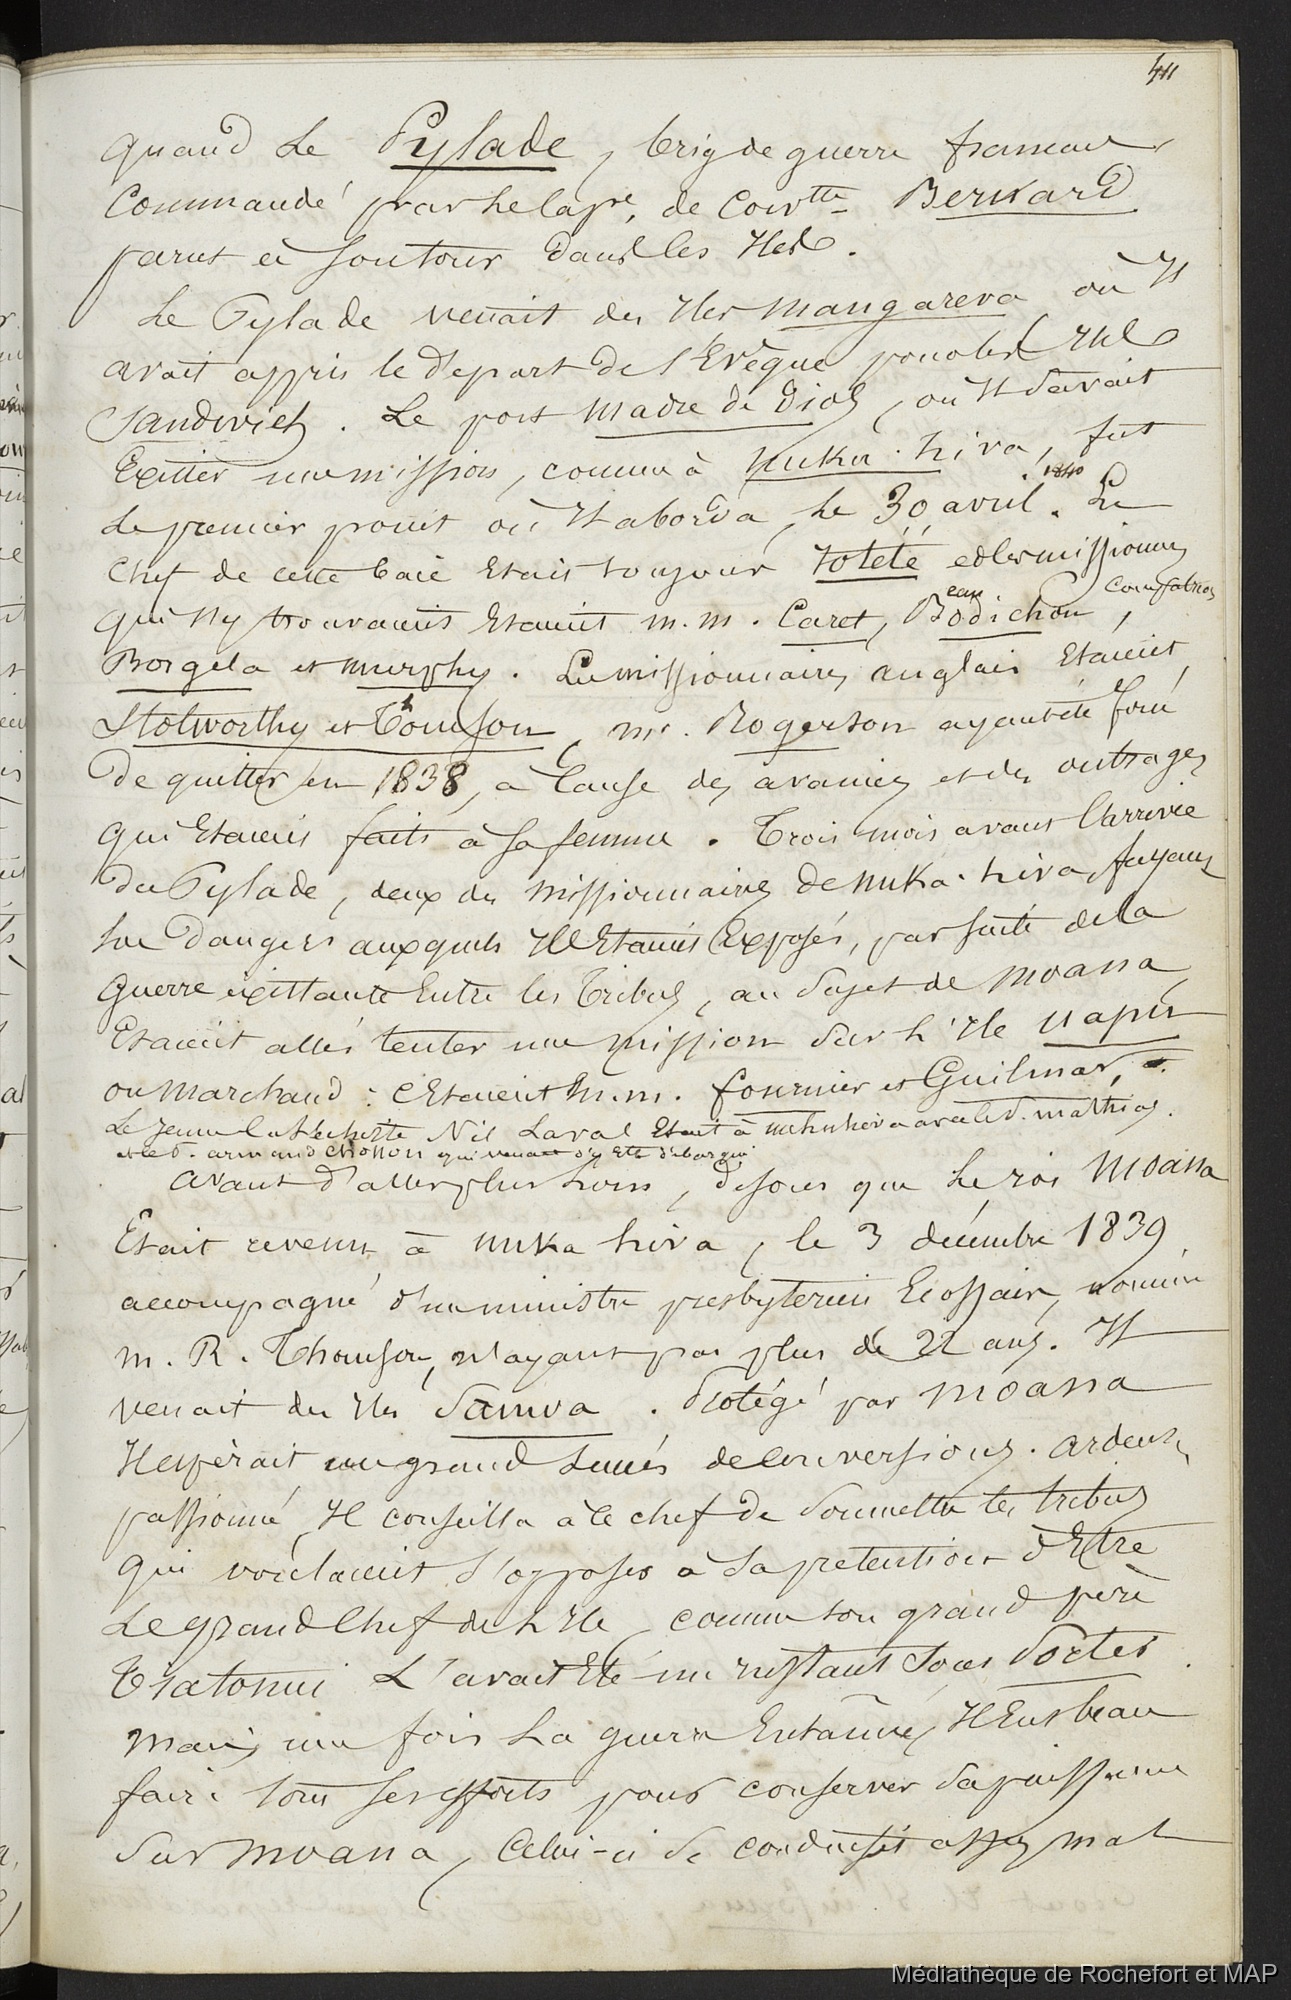 411
quand Le Pylade, brig de guerre français
Commandé par Le Capne. de Corvtte Bernard
parut à son tour dans les Iles.
Le Pylade venait des Iles Mangareva où Il
avait appris le départ de l'Evêque pour les Iles
Sandwich. Le port Madre de Dios, où Il savait
Exitter une mission, comme à Nuka-hiva, fut
Le premier point où Il aborda, Le 30 avril 1840. Le
Chef de cette baie Etait toujours Iotété et les missionnres
qui s'y trouvaient Etaient m.m. Caret, Baudichon, Comfatrices
Borgela et Murphy. Les missionnaires anglais Etaient
Stolworthy et Thomson, Mr. Rogerson ayant été forcé
De quitter en 1838, à Cause des avanies et des outrages
qui Etaient faits à sa femme. Trois mois avant l'arrivée
du Pylade, deux des missionnaires de Nuka-hiva, fuyant
les dangers auxquels Ils Etaient Exposés, par suite de la
guerre existante Entre les Tribus, au sujet de Moana
Etaient allés tenter une mission sur L'Ile Uapou
ou Marchand: C'Etaient M.M. fournier et Guilmar,
Le Jeune Catéchiste Nil Laval Etait à nukuhiva avec le P. Mathias.
et le P. armand Chosson qui venait d'y Etre débarqué
avant d'aller plus Loin, disons que Le roi Moana
Etait revenu à Nuka hiva, le 3 décembre 1839
accompagné d'un ministre presbyterien Ecossais, nommé
m. R. Thomson, n'ayant pas plus de 22 ans. Il
venait des Iles Samoa. Protégé par Moana
Il espèrait un grand succès de Conversions. Ardent,
passionné, Il conseilla à ce chef de soumettre les tribus
qui voulaient s'opposer à sa prétention d'Etre
Le grand Chef de L'Ile, comme son grand père
Kiatonui L'avait Eté un instant sous Porter.
Mais, une fois La guerre Entamée, Il Eut beau
faire tous ses efforts pour conserver sa puissance
sur Moana, Celui-ci se conduisit assez mal
Médiathèque de Rochefort et MAP